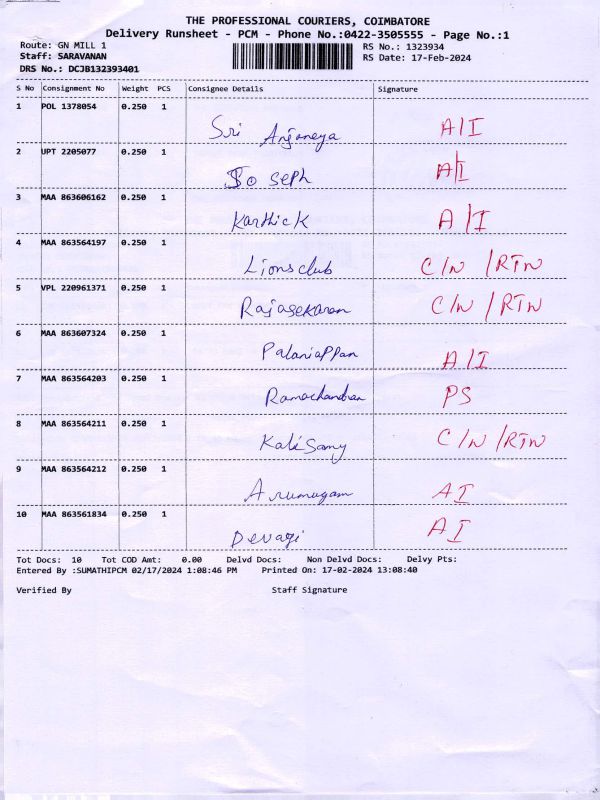 THE PROFESSIONAL COURIERS, COIMBATORE
Delivery Runsheet - PCM - Phone No.:0422-3505555 - Page No.:1
Route: GN MILL 1 RS No.: 1323934
Staff: SARAVANAN RS Date: 17-Feb-2024
DRS No.: DCJB132393401
S No Consignment No Weight PCS Consignee Details Signature
1 POL 1378054 0.250 1
Sri Anjaneya A/I
2 UPT 2205077 0.250 1
Joseph A/I
3 MAA 863606162 0.250 1
Karthick A/I
4 MAA 863564197 0.250 1
Lionsclub C/N /RTN
5 VPL 220961371 0.250 1
Rajasekaran C/N /RTN
6 MAA 863607324 0.250 1
Palaniappan A/I
7 MAA 863564203 0.250 1
Ramachandran PS
8 MAA 863564211 0.250 1
Kalisamy C/N /RTN
9 MAA 863564212 0.250 1
Arumugam AI
10 MAA 863561834 0.250 1
Devagi AI
Tot Docs: 10 Tot COD Amt: 0.00 Delvd Docs: Non Delvd Docs: Delvy Pts:
Entered By :SUMATHIPCM 02/17/2024 1:08:46 PM Printed On: 17-02-2024 13:08:40
Verified By Staff Signature